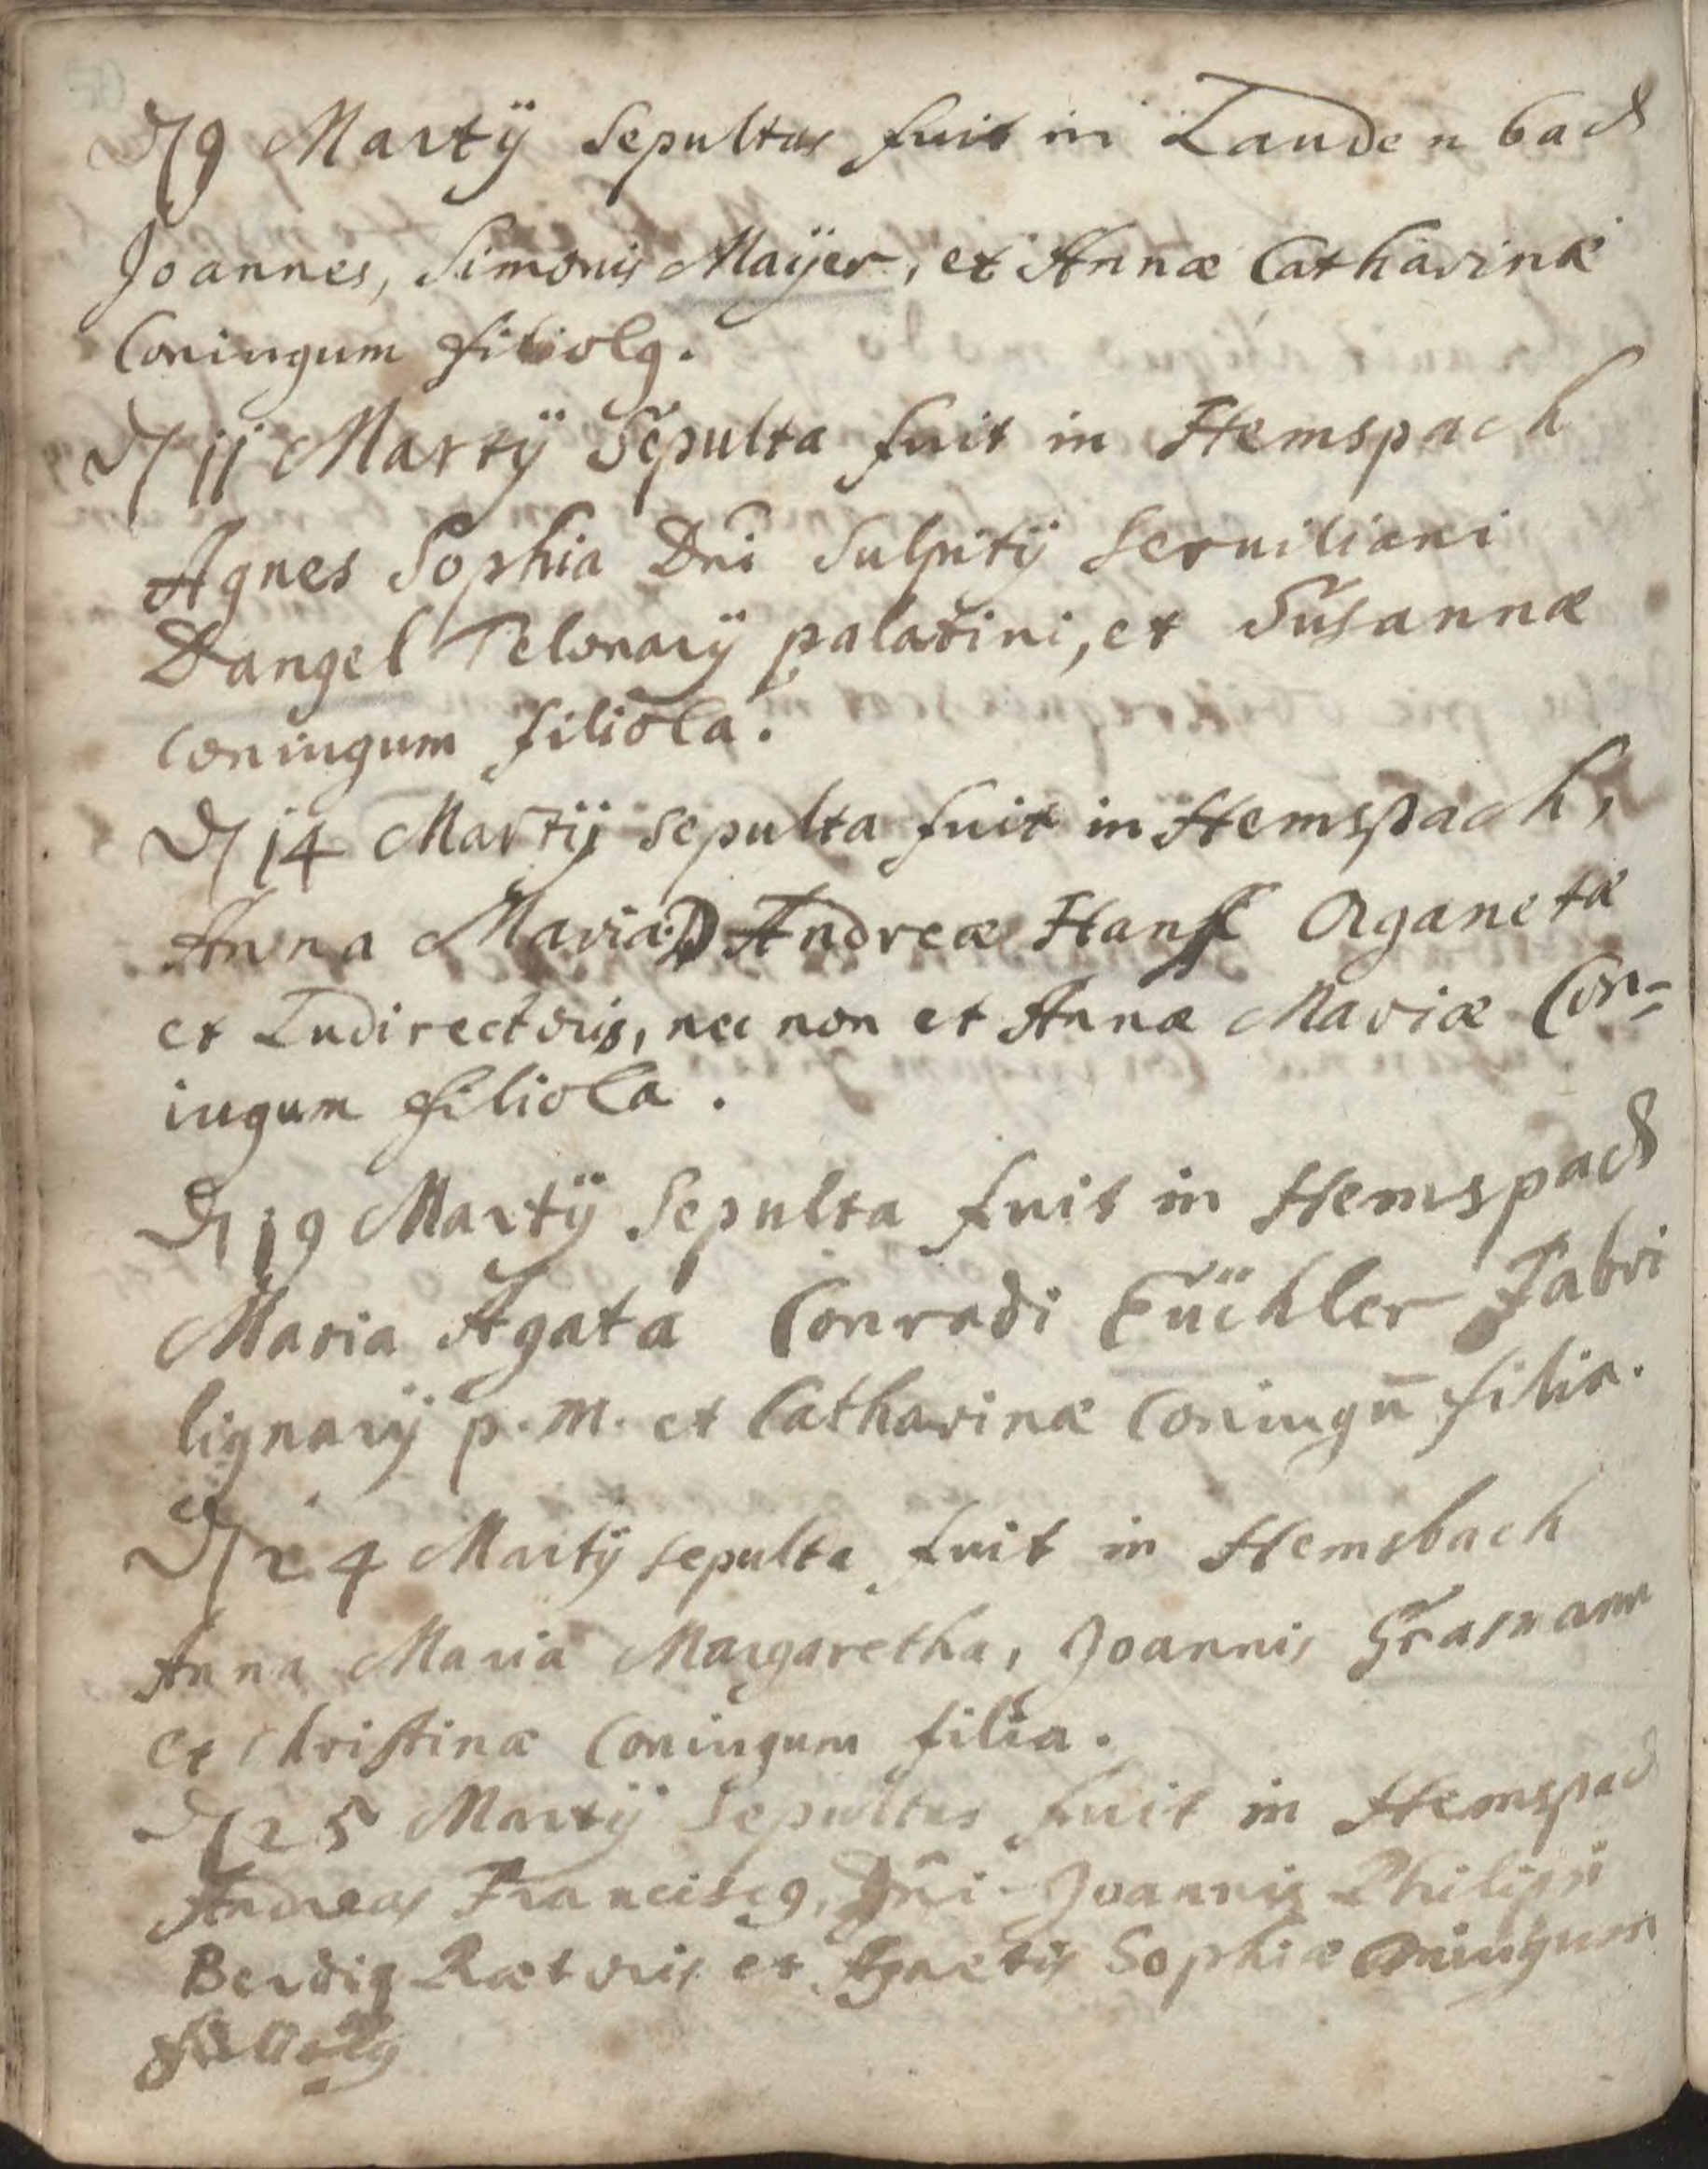 9 Martÿ Sepultus fuit in Laudenbach
Joannes, Simonis Maÿer, et Annæ Catharinæ
Coniugum filiolꝯ.
11 Martÿ Sepulta fuit in Hemspach
Agnes Sophia Dñi Sulpitÿ Seruiliani
Dangel Telonarÿ palatini, et Susannæ
coniugum filiola.
14 Martÿ sepulta fuit in Hemspach,
Anna Maria D Andreæ Organetæ
et Ludirectoris, nec non et Annæ Mariæ Con=
iugum filiola.
19 Martÿ Sepulta fuit in Hemspach
Maria Agata Conradi Fabri
lignarÿ p. m. et Catharinæ Coniugū filia.
24 Martÿ sepulta fuit in Hemsbach
Anna Maria Margaretha, Joannis Grasmann
et Christinæ Coniugum filia.
25 Martÿ Sepultus fuit in Hemspach
Andreas Franciscꝯ, Dñi Joannis Philippi
et Agnetis Sophiæ Coniugum
filiolꝯ